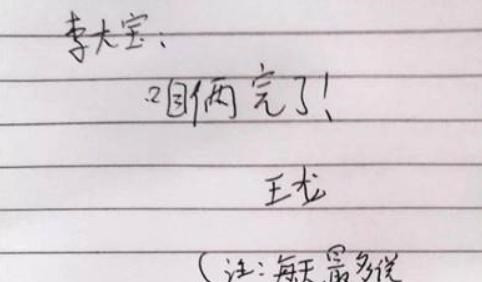 李大宝：
咱俩完了！
王龙
（注：每天最多说